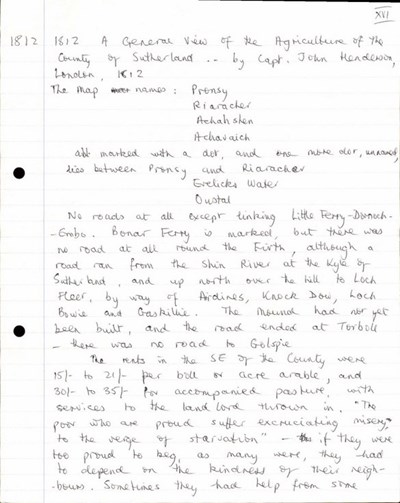 XVI
1812 1812 A General View of the Agriculture of the
County of Sutherland .. by Capt. John Henderson,
London, 1812
The map names: Pronsy
Riaracher
Achahshen
Achavaich
all marked with a dot, and one more dot, unnamed,
lies between Pronsy and Riaracher
Evelicks Water
Oustal
No roads at all except linking Little Ferry-Dornoch-
-Grobo. Bonar Ferry is marked, but there was
no road at all round the Firth, although a
road ran from the Shin River at the Kyle of
Sutherland, and up north over the hill to Loch
Fleer, by way of Airdines, Knock Dow, Loch
Bowie and Gaskillie. The Mound had not yet
been built, and the road ended at Torboll
- there was no road to Golspie
The rents in the SE of the County were
15/- to 21/- per boll or acre arable, and
30/- to 35/- for accompanied pasture, with
services to the landlord thrown in. "The
poor who are proud suffer excruciating misery,
to the verge of starvation" - if they were
too proud to beg, as many were, they had
to depend on the kindness of their neigh-
-bours. Sometimes they had help from some